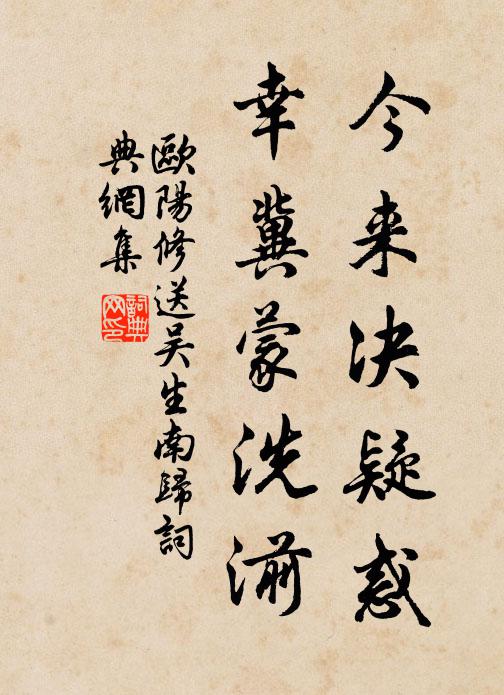 今来决疑惑
幸冀蒙洗湔
歐陽修送吴生南歸詞
典網集
詞典
网印